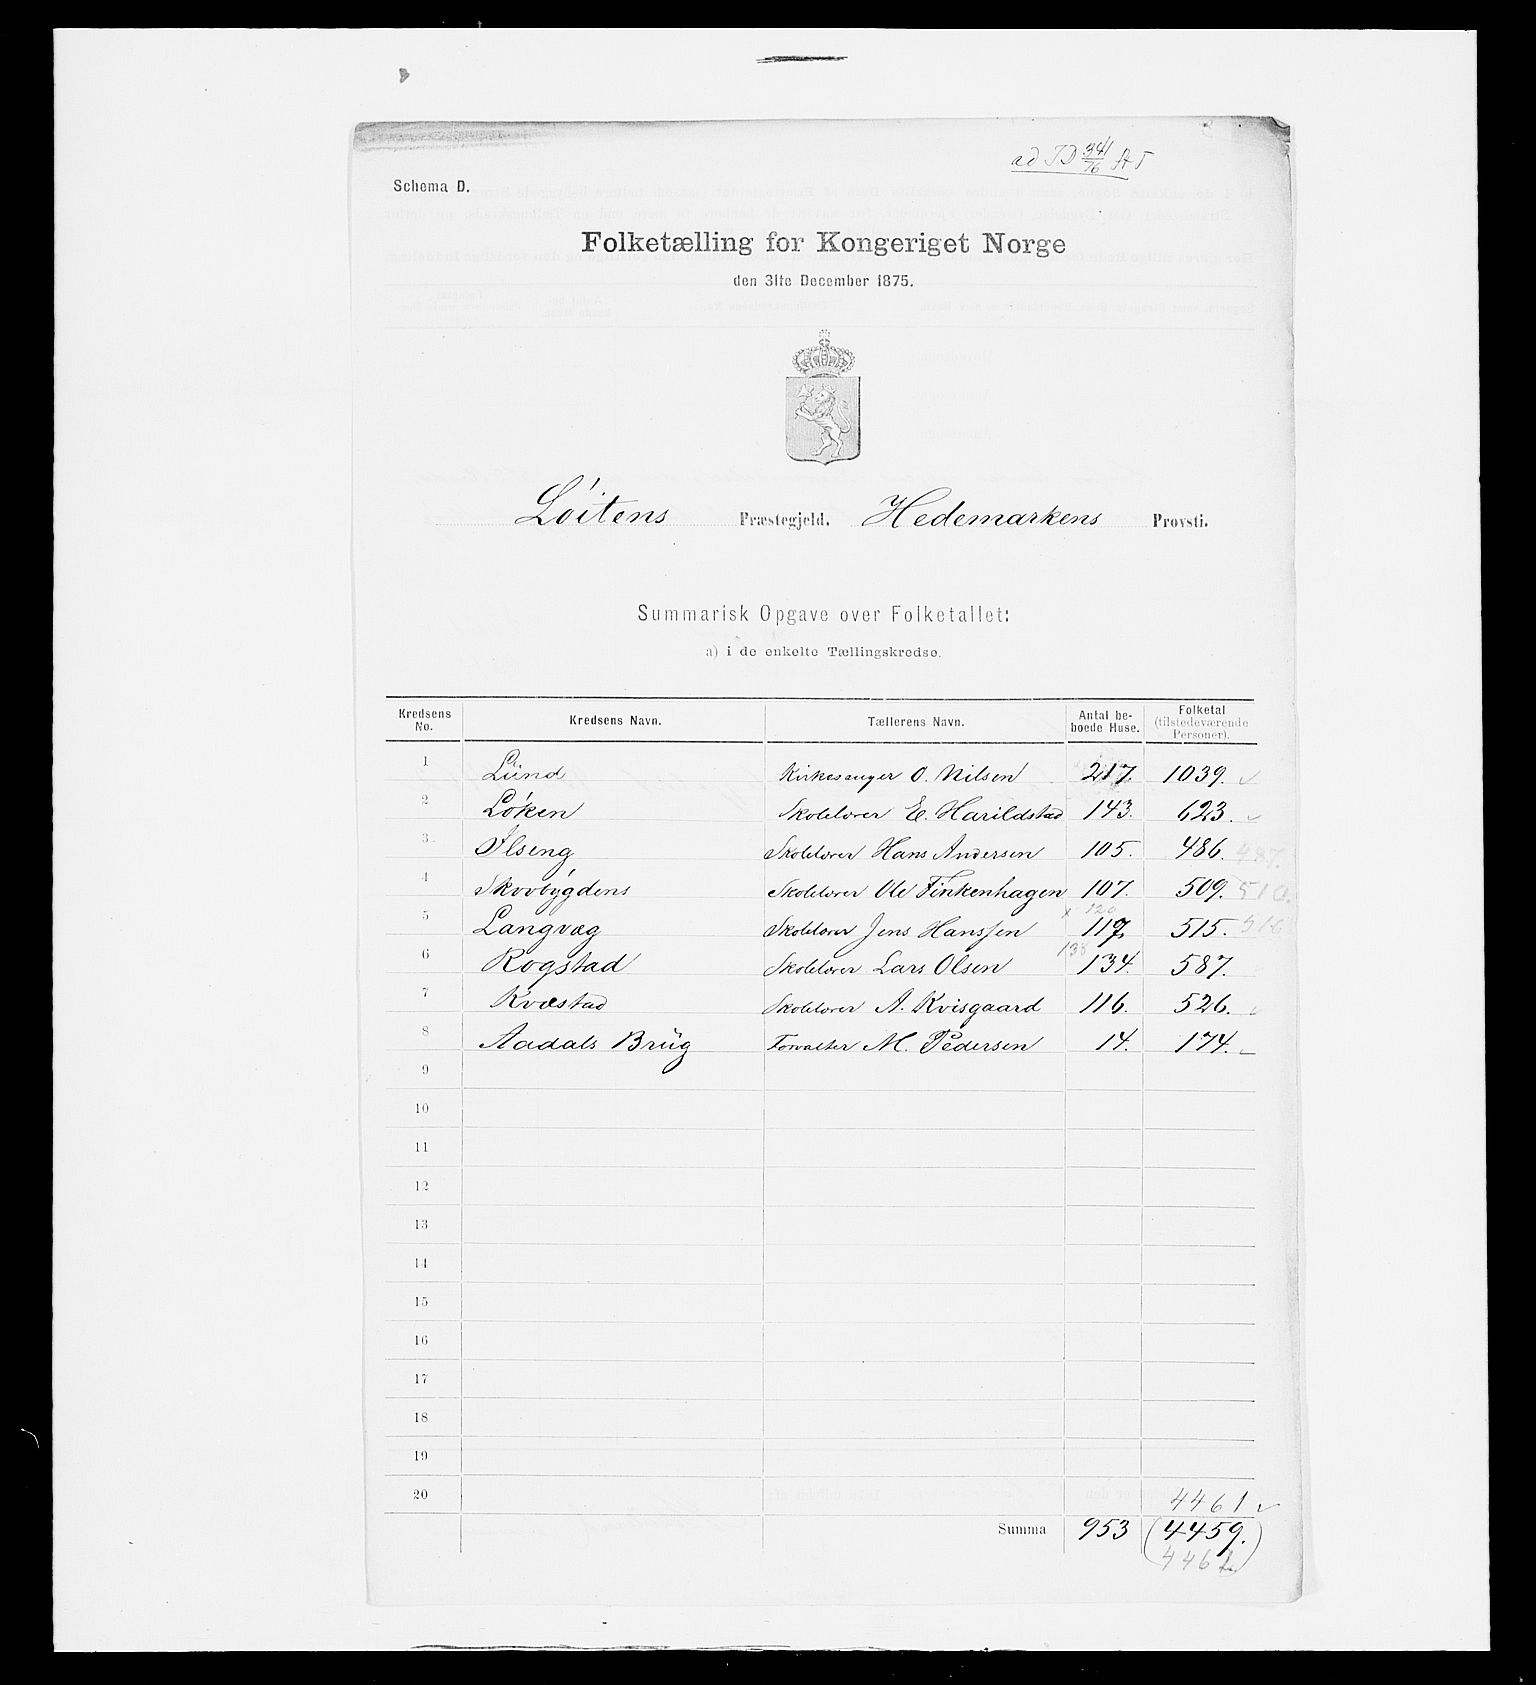 ad JD 341/76
Schema D.
Folketælling for Kongeriget Norge
den 31te December 1875.
Löitens Præstegjeld. Hedemarkens Provsti.
Summarisk Opgave over Folketallet:
a) i de enkelte Tællingskredse.
Kredsens No. Kredsens Navn. Tællerens Navn. Antal beboede Huse. Folketal (tilstedeværende Personer).
1 Lünd Kirkesanger O. Nilsen 217. 1039. ✓
2 Löken Skolelærer E. Harildstad 143. 623. ✓
3 Ilseng Skolelærer Hans Andersen 105. 486. 487.
4 Skovbygdens Skolelærer Ole Finkenhagen 107. 509. 510.
x 120
5 Langvæg Skolelærer Jens Hanssen 117. 515. 516
138
6 Rogstad Skolelærer Lars Olsen 134. 587.
7 Kvæstad Skolelærer A. Kvisgaard 116. 526. ✓
8 Aadals Brüg Forvalter M. Pedersen 14. 174. ✓
9
10
11
12
13
14
15
16
17
18
19
20 4461 ✓
Summa 953 (4459.)